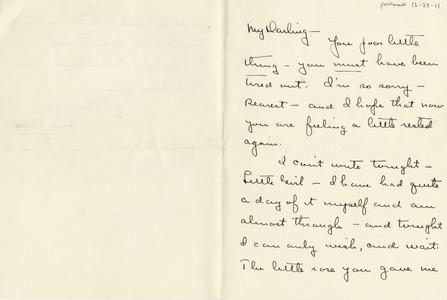 postmark 12-29-11
My Darling—
You poor little
thing - you must have been
tired out. I'm so sorry -
Dearest - and I hope that now
you are feeling a little rested
again.
I can't write tonight -
Little Girl - I have had quite
a day of it myself and am
almost through - and tonight
I can only wish, and wait.
The little rose you gave me